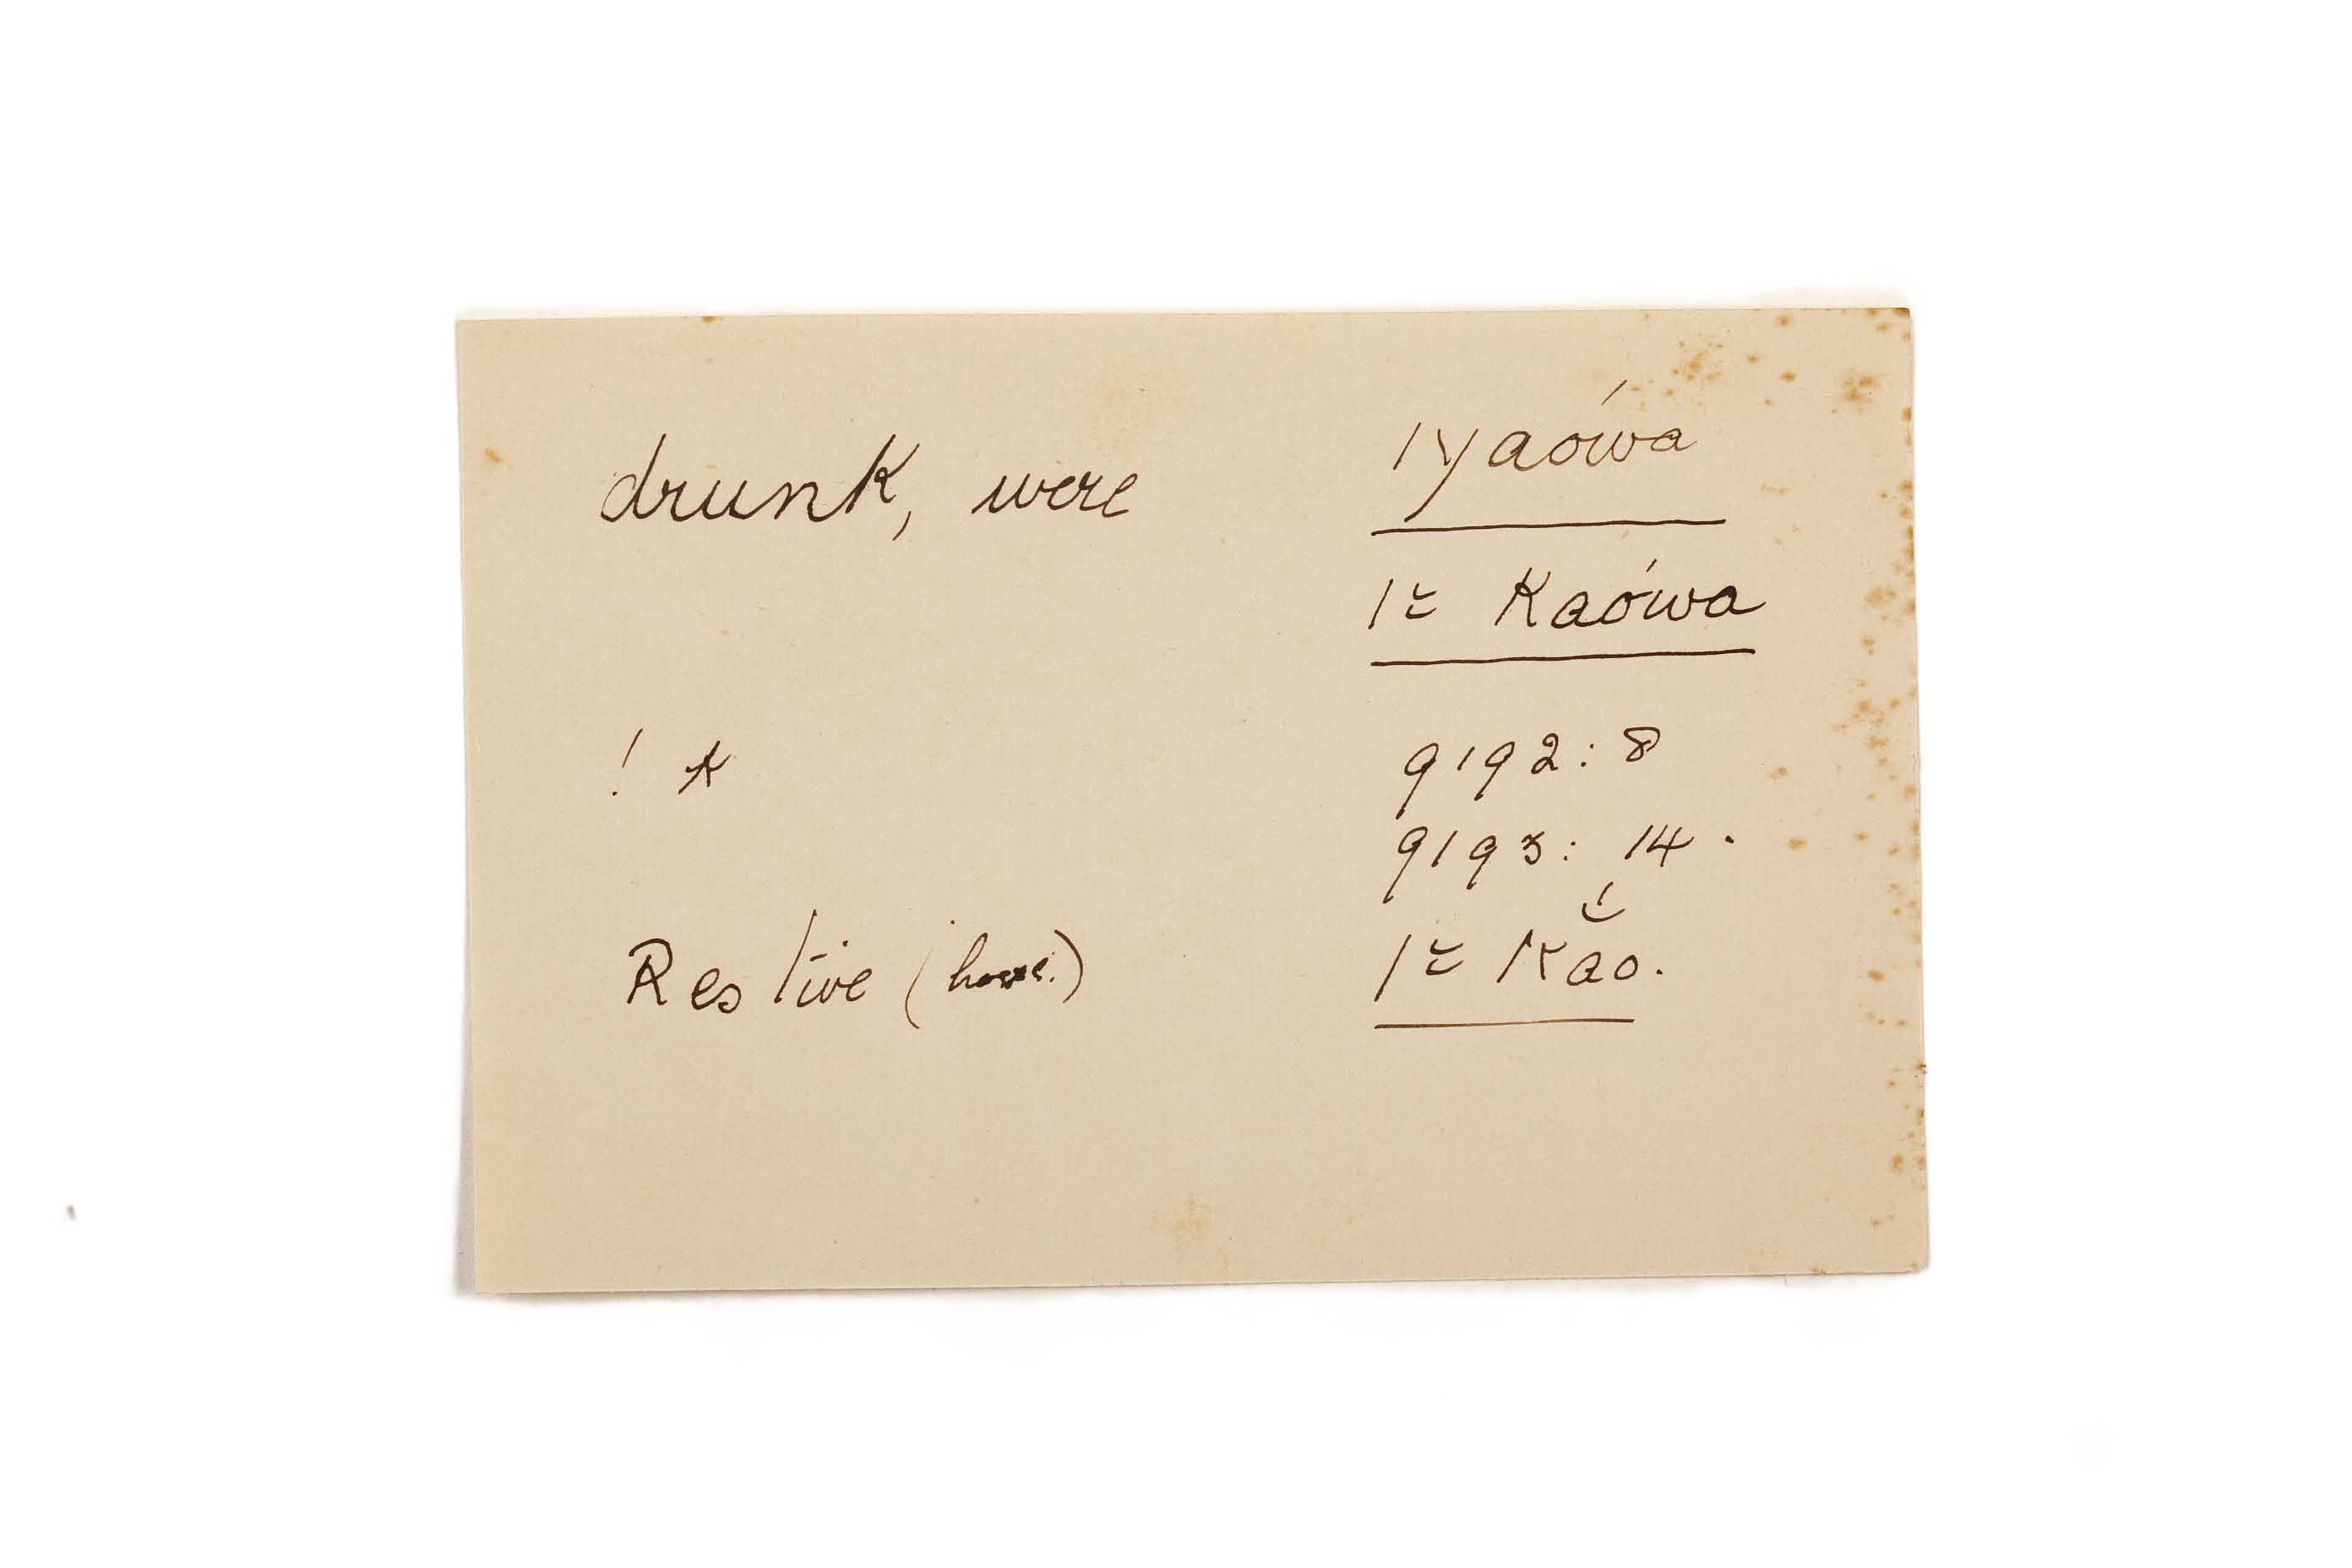 drunk, were ǀyaówa
ǀ̆ kaówa
! k 9192: 8
9193: 14.
Restive (horse.) ǀ̆ kắo.